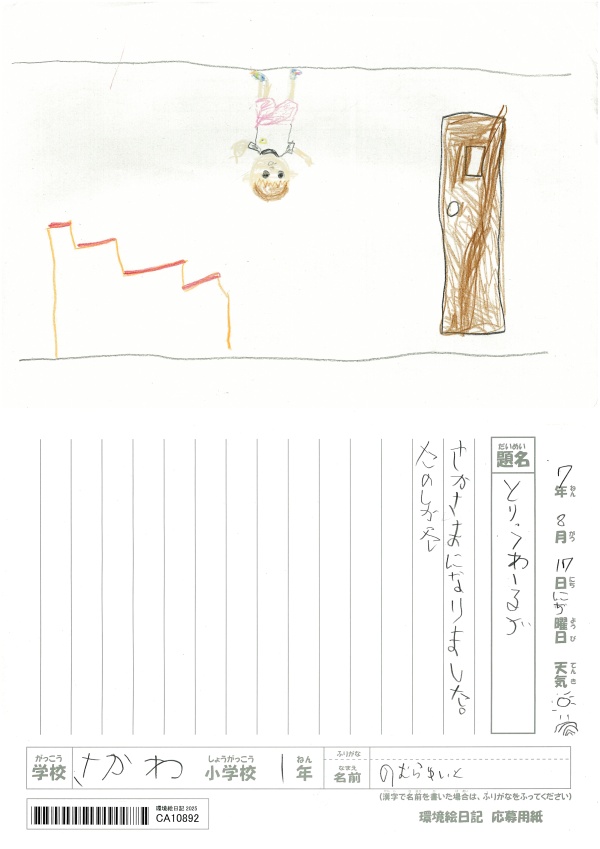 7年 8月 17日 にち曜日 天気
ねん がつ にち ようび てんき
だいめい
題名
とりっつわーるど
さかさまになりました。
たのしかた
がっこう
学校
さかわ
しょうがっこう
小学校
1
ねん
年
ふりがな
なまえ
名前
のむらめいと
(漢字で名前を書いた場合は、ふりがなをふってください)
環境絵日記 2025
CA10892
環境絵日記 応募用紙